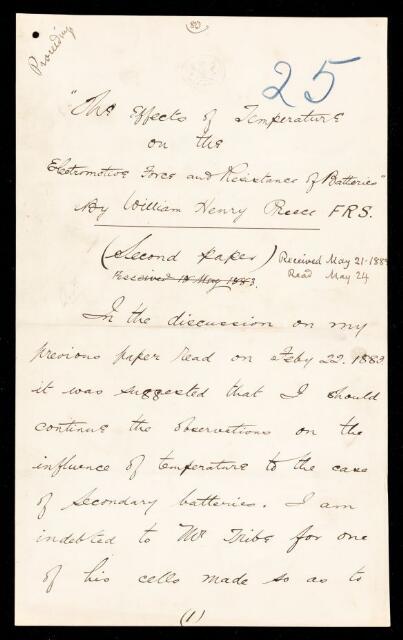 Proceedings
25
"The Effects of Temperature
on the
Electromotive Force and Resistance of Batteries"
By William Henry Preece F.R.S.
(Second paper)
Received May 21 - 1883
Read May 24
Received 18 May 1883.
In the discussion on my
previous paper read on Feby 22. 1883
it was suggested that I should
continue the observations on the
influence of temperature to the case
of secondary batteries. I am
indebted to Mr Tribe for one
of his cells made so as to
(1)